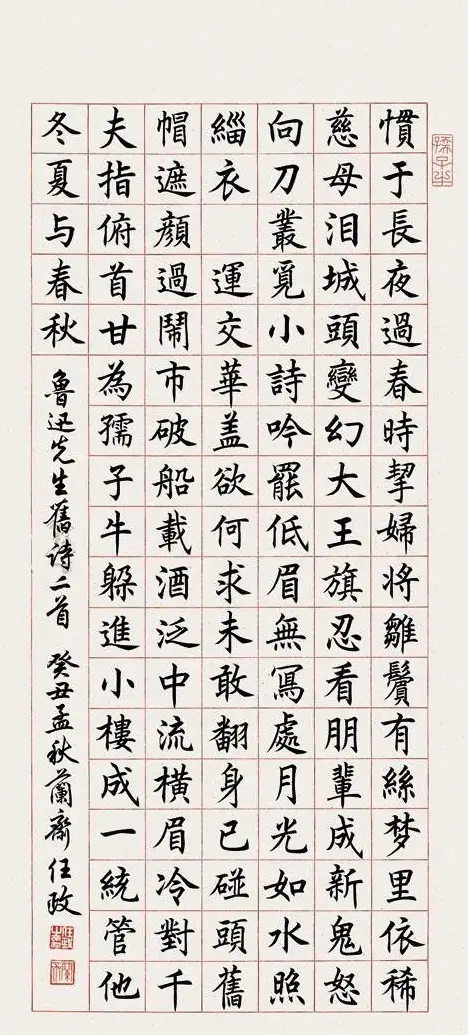 孺子牛
慣于長夜過春時挈婦将雛鬢有絲梦里依稀
慈母泪城頭變幻大王旗忍看朋輩成新鬼怒
向刀叢覓小詩吟罷低眉無冩處月光如水照
緇衣 運交華盖欲何求未敢翻身已碰頭舊
帽遮顔過鬧市破船載酒泛中流橫眉冷對千
夫指俯首甘為孺子牛躲進小樓成一統管他
冬夏与春秋
魯迅先生舊詩二首 癸丑孟秋蘭齋任政